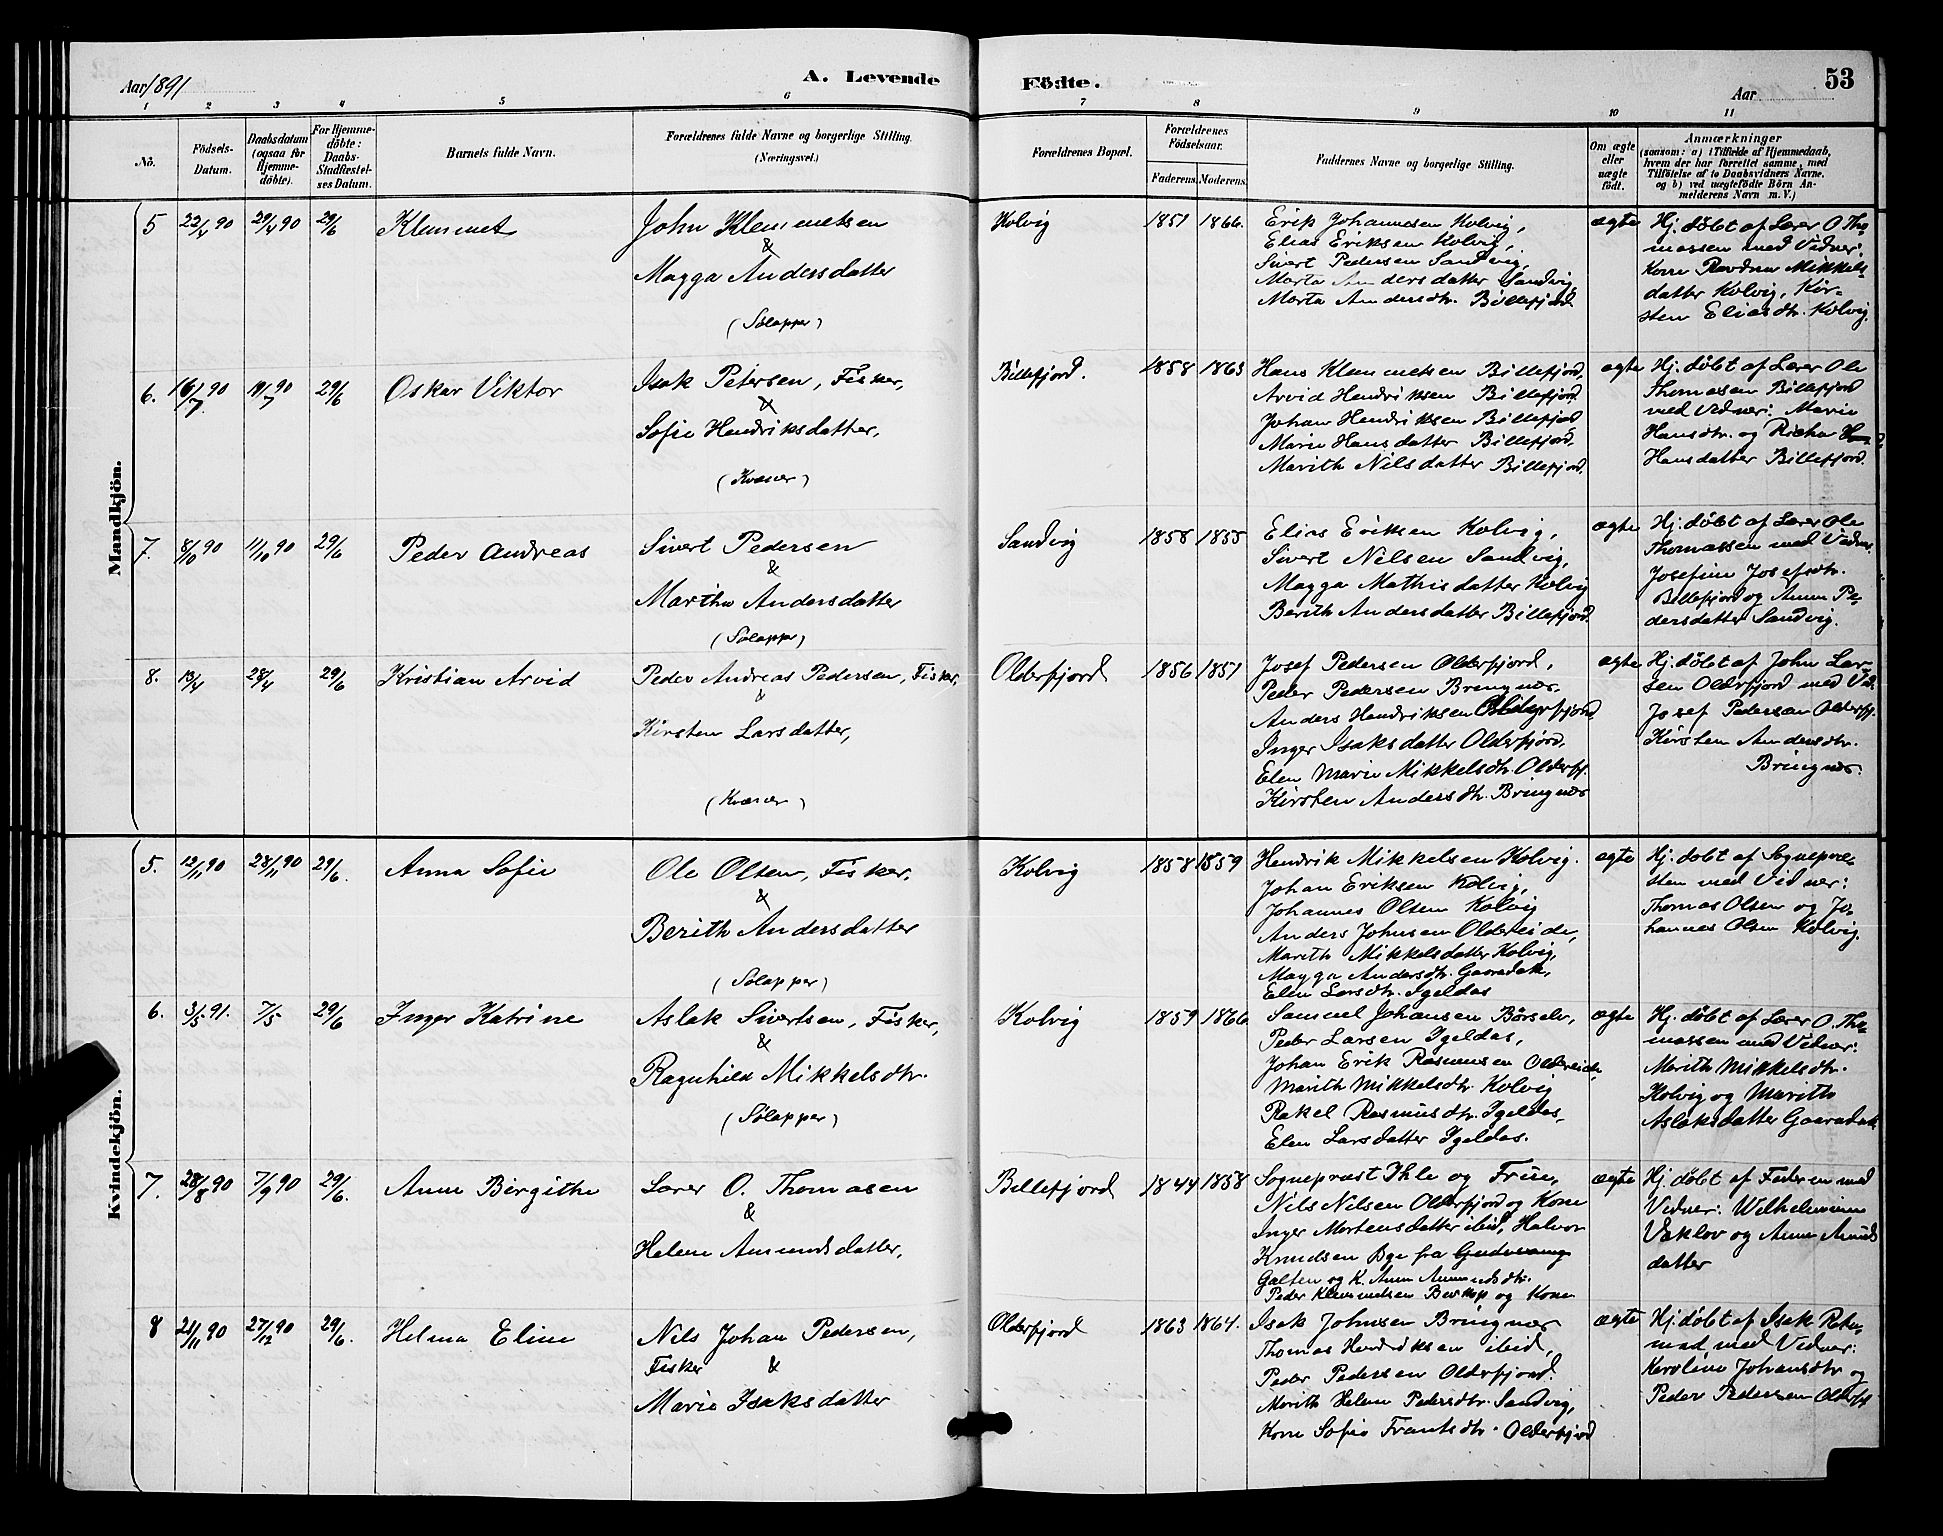 Aar 1891
A. Levende Födte.
Aar
53
1 2 3 4 5 6 7 8 9 10 11
No.
Födsels-Datum.
Daabsdatum (ogsaa for Hjemme-döbte).
For Hjemme-döbte: Daabs-Stadfæstel-ses Datum.
Barnets fulde Navn.
Forældrenes fulde Navne og borgerlige Stilling.
(Næringsvei.)
Forældrenes Bopæl.
Forældrenes Födselsaar.
Faderens. Moderens.
Faddernes Navne og borgerlige Stilling.
Om ægte eller uægte födt.
Anmærkninger
(saasom: a) i Tilfælde af Hjemmedaab,
hvem der har forrettet samme, med
Tilföielse af to Daabsvidners Navne,
og b) ved uægtefödte Börn An-
melderens Navn m. V.)
Mandkjön.
5 22/4 90 29/4 90 29/6 Klemmet
John Klemmetsen
&
Magga Andersdatter
(Sølapper)
Kolvig 1851 1866.
Erik Johannesen Kolvig,
Elias Eriksen Kolvig,
Sivert Pedersen Sandvig,
Marta Andersdatter Sandvig
Marta Andersdtr. Billefjord
ægte
Hj. døbt af Lærer O Tho-
massen med Vidner:
Kone Ravdna Mikkels-
datter Kolvig, Kir-
sten Eliasdtr. Kolvig.
6. 16/7 90 19/7 90 29/6 Oskar Viktor
Isak Petersen, Fisker,
&
Sofie Hendriksdatter,
(Kvæner)
Billefjord. 1858 1863
Hans Klemmetsen Billefjord
Arvid Hendriksen Billefjord
Johan Hendriksen Billefjord
Marie Hansdatter Billefjord,
Marith Nilsdatter Billefjord.
ægte
Hj. døbt af Lærer Ole
Thomasen Billefjord
med Vidner: Marie
Hansdtr. og Rikka
Hansdatter Billefjord.
7. 8/10 90 11/10 90 29/6 Peder Andreas
Sivert Pedersen
&
Martha Andersdatter
(Sølapper)
Sandvig 1858 1855
Elias Eriksen Kolvig,
Sivert Nilsen Sandvig,
Magga Mathisdatter Kolvig
Berith Andersdatter Billefjord.
ægte
Hj. døbt af Lærer Ole
Thomassen med Vidner.
Josefine Josefsdtr.
Billefjord og Anna Pe-
dersdatter Sandvig.
8. 13/4 28/4 29/6 Kristian Arvid
Peder Andreas Pedersen, Fisker,
&
Kirsten Larsdatter,
(Kvæner)
Olderfjord 1856 1851
Josef Pedersen Olderfjord,
Peder Pedersen Bringnæs.
Anders Hendriksen Olderfjord
Inger Isaksdatter Olderfjord,
Elen Marie Mikkelsdtr. Olderfj.
Kirsten Andersdtr. Bringnæs
ægte
Hj. døbt af John Lar-
sen Olderfjord med Vid.
Josef Pedersen Olderfj.
Kirsten Andersdtr.
Bringnæs.
Kvindekjön.
5. 12/11 90 28/11 90 29/6. Anna Sofie
Ole Olsen, Fisker,
&
Berith Andersdatter
(Sølapper)
Kolvig 1858 1859
Hendrik Mikkelsen Kolvig.
Johan Eriksen Kolvig,
Johannes Olsen Kolvig
Anders Johnsen Oldereide,
Marith Mikkelsdatter Kolvig,
Magga Andersdtr. Gaaradak,
Elen Larsdtr. Igeldas
ægte
Hj. døbt af Sognepræ-
sten med Vidner:
Thomas Olsen og Jo-
hannes Olsen Kolvig.
6. 3/5 91. 7/5 29/6 Inger Katrine
Aslak Sivertsen, Fisker,
&
Ragnhild Mikkelsdtr.
(Sølapper)
Kolvig 1859 1866
Samuel Johansen Børselv,
Peder Larsen Igeldas,
Johan Erik Rasmusen Oldereide,
Marith Mikkelsdtr. Kolvig
Rakel Rasmusdtr. Igeldas,
Elen Larsdatter Igeldas.
ægte
Hj. døbt af Lærer O. Tho-
massen med Vidner:
Marith Mikkelsdtr.
Kolvig og Marith
Aslaksdatter Gaaradak
7. 28/8 90 7/9 90 29/6. Anne Birgithe
Lærer O. Thomasen
&
Helene Amundsdatter,
Billefjord 1844 1858
Sognepræst Ihle og Frue,
Nils Nilsen Olderfjord og Kone
Inger Mortensdatter ibid, Halvor
Knudsen Bge fra
Galten og K. Anna Amundsdtr.
Peder Klemmetsen Beskop og Kone
ægte
Hj. døbt af Faderen med
Vidner: Wilhelmine
Væklov og Anne Amunds
datter
8 21/11 90 27/12 90 29/6. Helma Eline
Nils Johan Pedersen,
Fisker &
Marie Isaksdatter
Olderfjord 1863 1864.
Isak Johnsen Bringnæs
Thomas Hendriksen ibid,
Peder Pedersen Olderfjord.
Marith Helene Pedersdtr. Sandvig,
Kone Sofie Frantsdtr. Olderfjord
ægte
Hj. døbt af Isak
med Vidner:
Karoline Johansdtr og
Peder Pedersen Olderfj